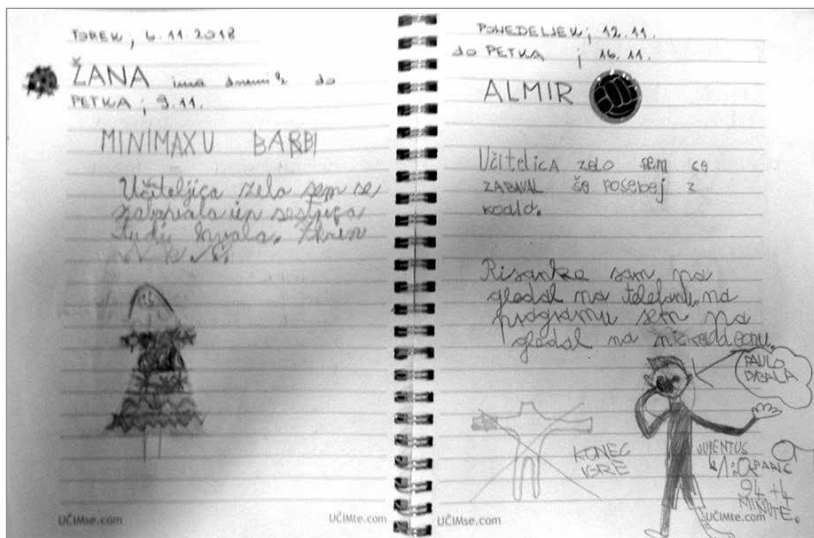 TOREK, 6.11.2018
ŽANA ima dnevnik do
PETKA, 9.11.
MINIMAXU BARBI
Učiteljica zelo sem se
zabavala in sestrica
tudi hvala.
UČIMse.com
PONEDELJEK, 12.11.
do PETKA, 16.11.
ALMIR
Učitelica zelo sem se
ZABAVAL še posebej z
koalo.
Risanke sem na
gledal na telefonu, na
programu sem na
gledal na nickeldeonu.
PAULO
DYBALA
KONEC
IGRE
JUVENTUS
1:0
94+4
MINUTE.
UČIMte.com